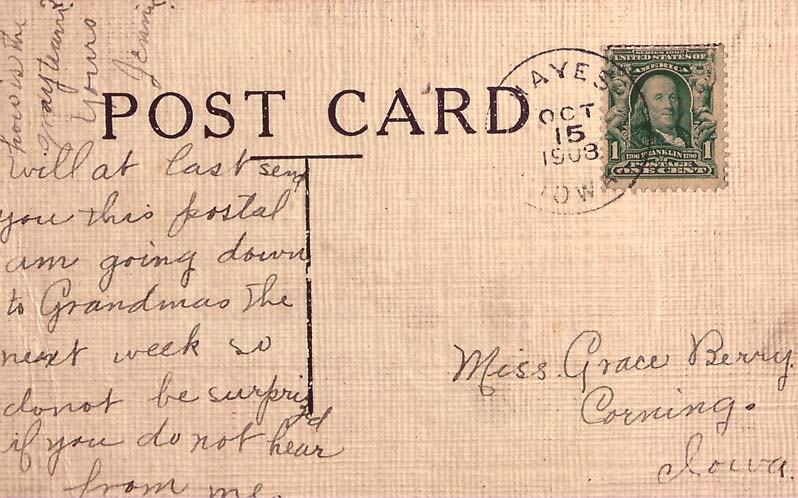 POST CARD
will at last send
you this postal
am going down
to Grandmas the
next week so
donot be surprized
if you do not hear
from me.
how is the
gray team
Yours
Jennie
HAYES
OCT
15
1908
IOWA
SERIES 1902
UNITED STATES OF
AMERICA
1 1706 FRANKLIN 1790 1
POSTAGE
ONE CENT
Miss. Grace Berry.
Corning.
Iowa.